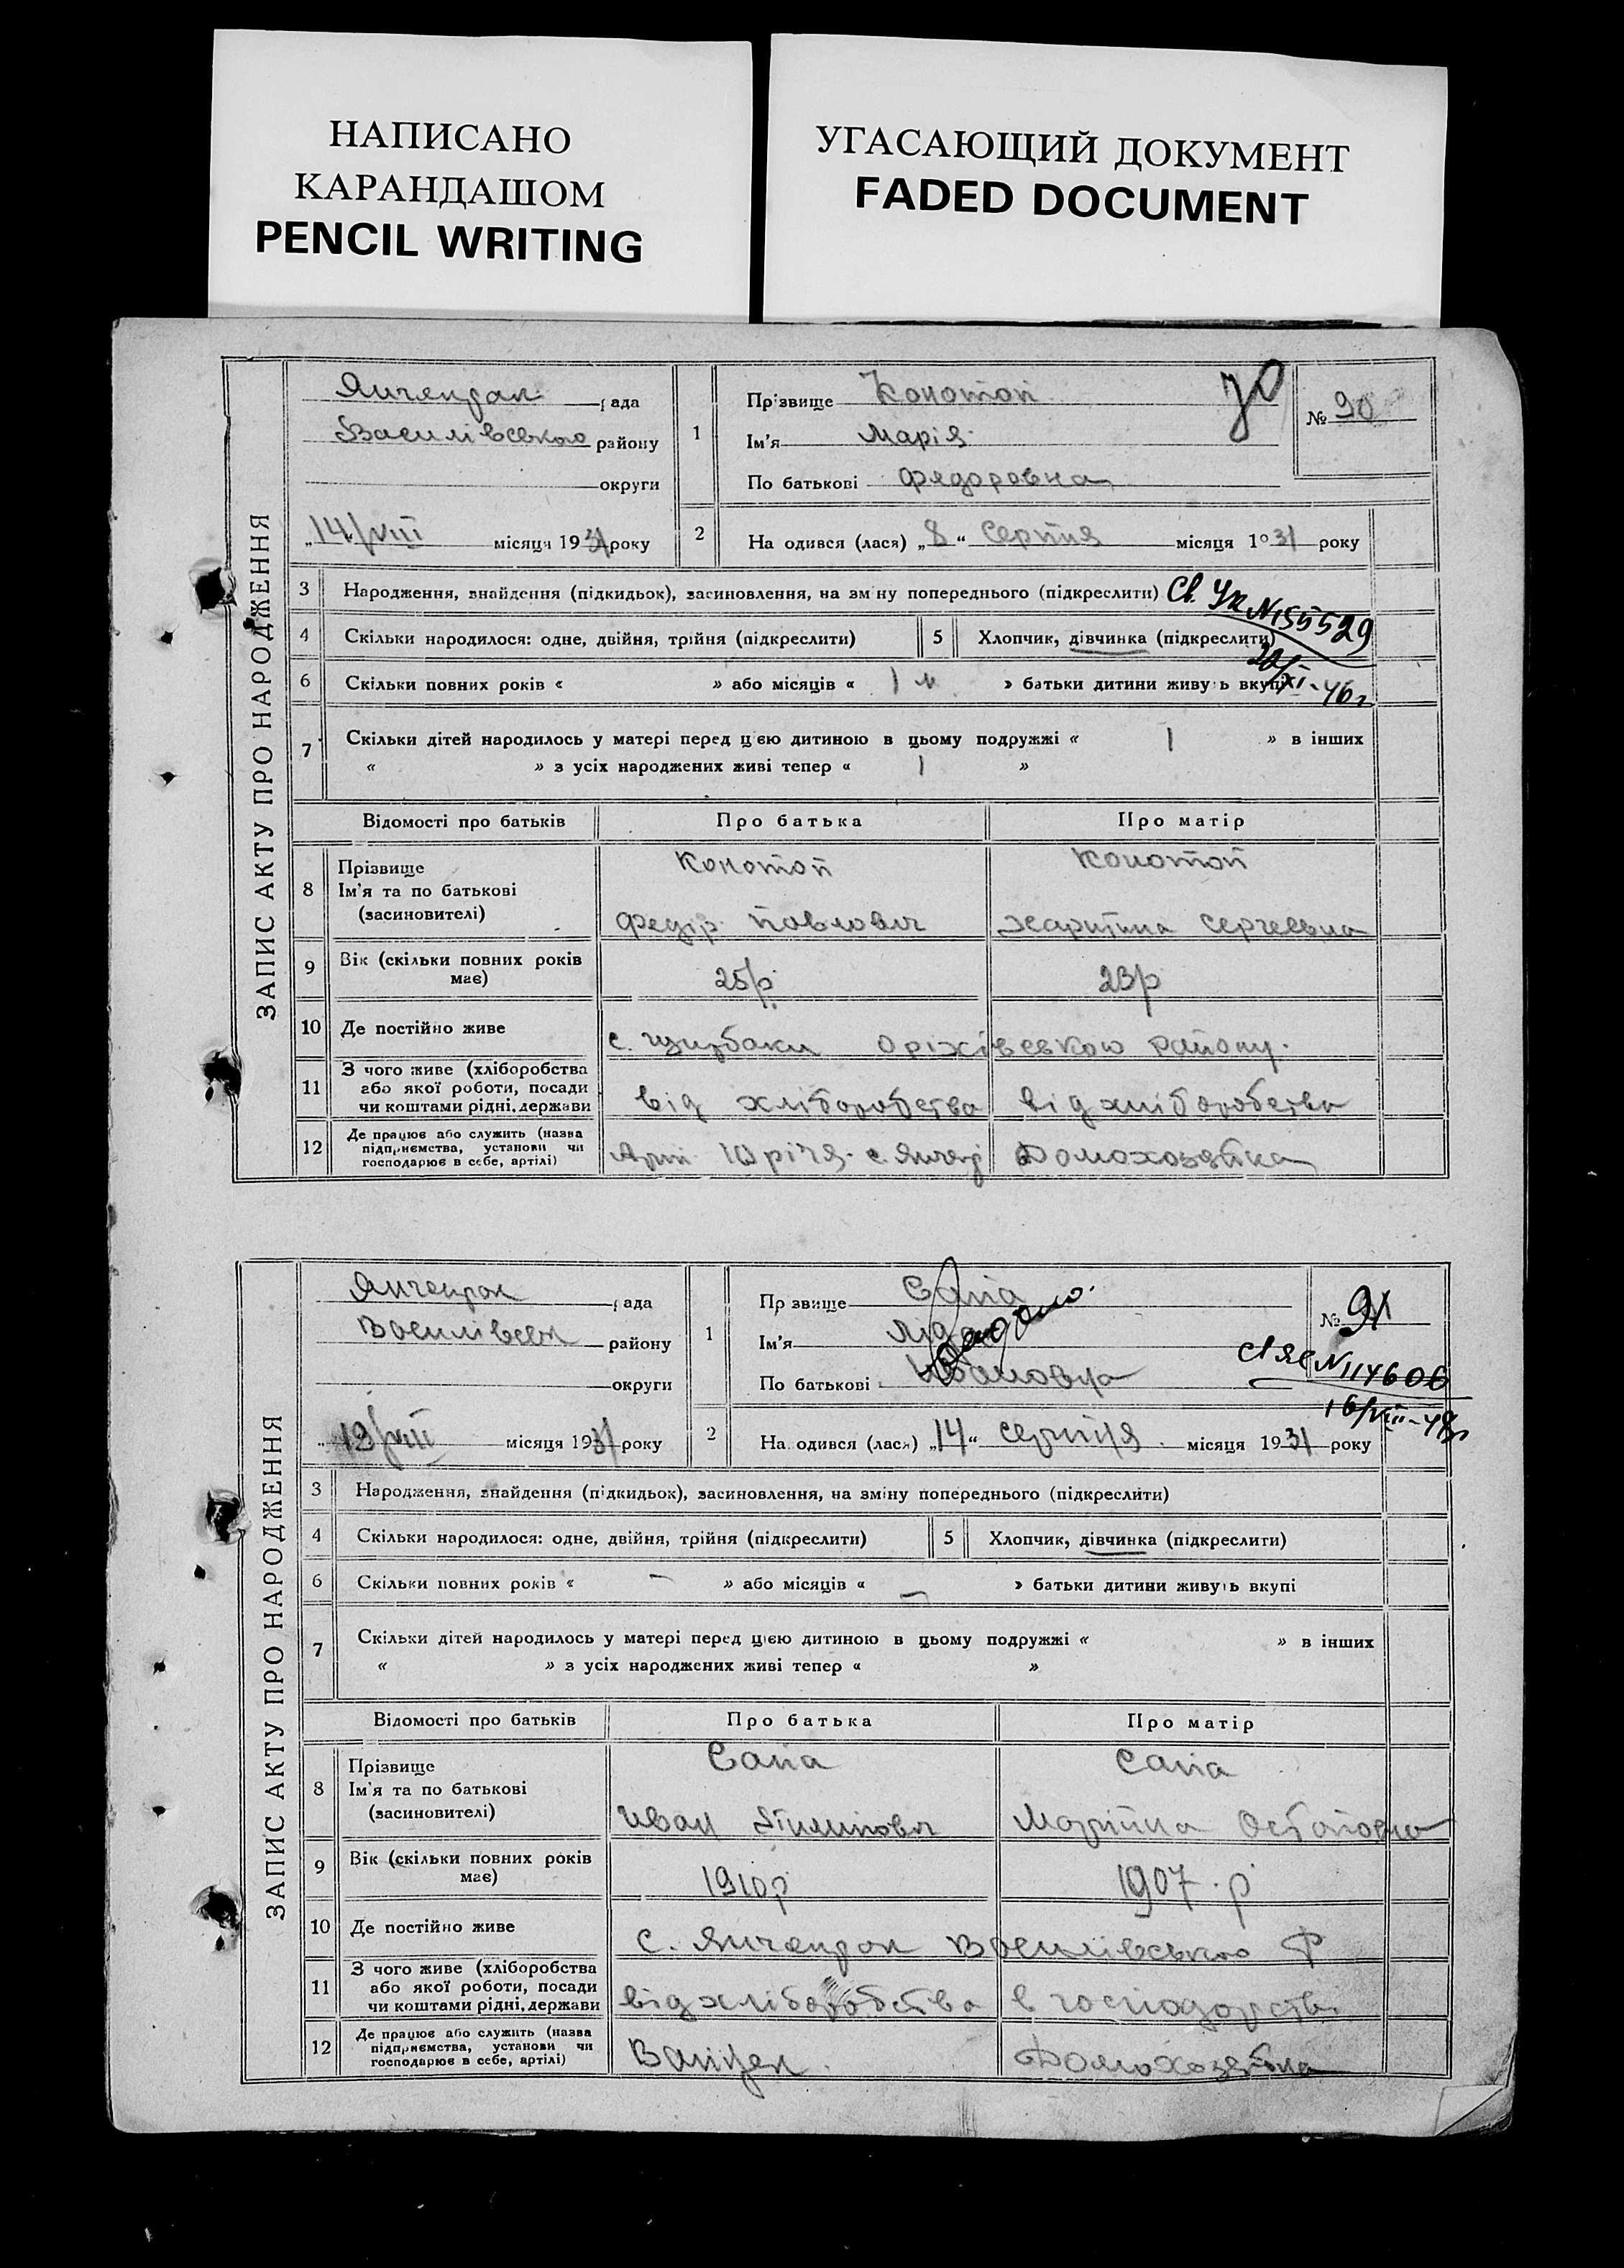 НАПИСАНО
КАРАНДАШОМ
PENCIL WRITING
УГАСАЮЩИЙ ДОКУМЕНТ
FADED DOCUMENT
ЗАПИС АКТУ ПРО НАРОДЖЕННЯ
Янчекрак рада
Василівського району
округи
„14/VIII місяця 1931 року
1 Прізвище Конотоп
Ім'я Марія
По батькові Федоровна
№ 90
2 На одився (лася) „8“ Серпня місяця 1931 року
3 Народження, знайдення (підкидьок), засиновлення, на зміну попереднього (підкреслити)
Св. Ук №155529
20/XI-46г
4 Скільки народилося: одне, двійня, трійня (підкреслити) 5 Хлопчик, дівчинка (підкреслити)
6 Скільки повних років « » або місяців « 1 м » батьки дитини живуть вкупі
7 Скільки дітей народилось у матері перед цією дитиною в цьому подружжі « 1 » в інших
« » з усіх народжених живі тепер « 1 »
Відомості про батьків Про батька Про матір
8 Прізвище Конотоп Конотоп
Ім'я та по батькові
(засиновителі) Федір Павлович Харитина Сергеевна
9 Вік (скільки повних років має) 25/р 23р
10 Де постійно живе с. Щирбаки Оріхівського району.
11 З чого живе (хліборобства
або якої роботи, посади
чи коштами рідні, держави від хліборобства від хліборобства
12 Де працює або служить (назва
підприємства, установи чи
господарює в себе, артілі) Арт. 10 річя с. Янчекр Домохозяйка
ЗАПИС АКТУ ПРО НАРОДЖЕННЯ
Янчекрак рада
Василівськ району
округи
„19/VIII місяця 1931 року
1 Пр звище Сапа
Ім'я Ліда
По батькові Ивановна
№ 91
Св ЯЄ №114606
16/VIII-48г
2 На одився (лася) „14“ серпня місяця 1931 року
3 Народження, знайдення (підкидьок), засиновлення, на зміну попереднього (підкреслити)
4 Скільки народилося: одне, двійня, трійня (підкреслити) 5 Хлопчик, дівчинка (підкреслити)
6 Скільки повних років « — » або місяців « — » батьки дитини живуть вкупі
7 Скільки дітей народилось у матері перед цією дитиною в цьому подружжі « » в інших
« » з усіх народжених живі тепер « »
Відомості про батьків Про батька Про матір
8 Прізвище Сапа Сапа
Ім'я та по батькові
(засиновителі) Иван Марійка Остаповна
9 Вік (скільки повних років має) 1910р 1907.р
10 Де постійно живе с. Янчекрак Василівського Р
11 З чого живе (хліборобства
або якої роботи, посади
чи коштами рідні, держави від хліборобства в господарстві
12 Де працює або служить (назва
підприємства, установи чи
господарює в себе, артілі) Домохозяйка